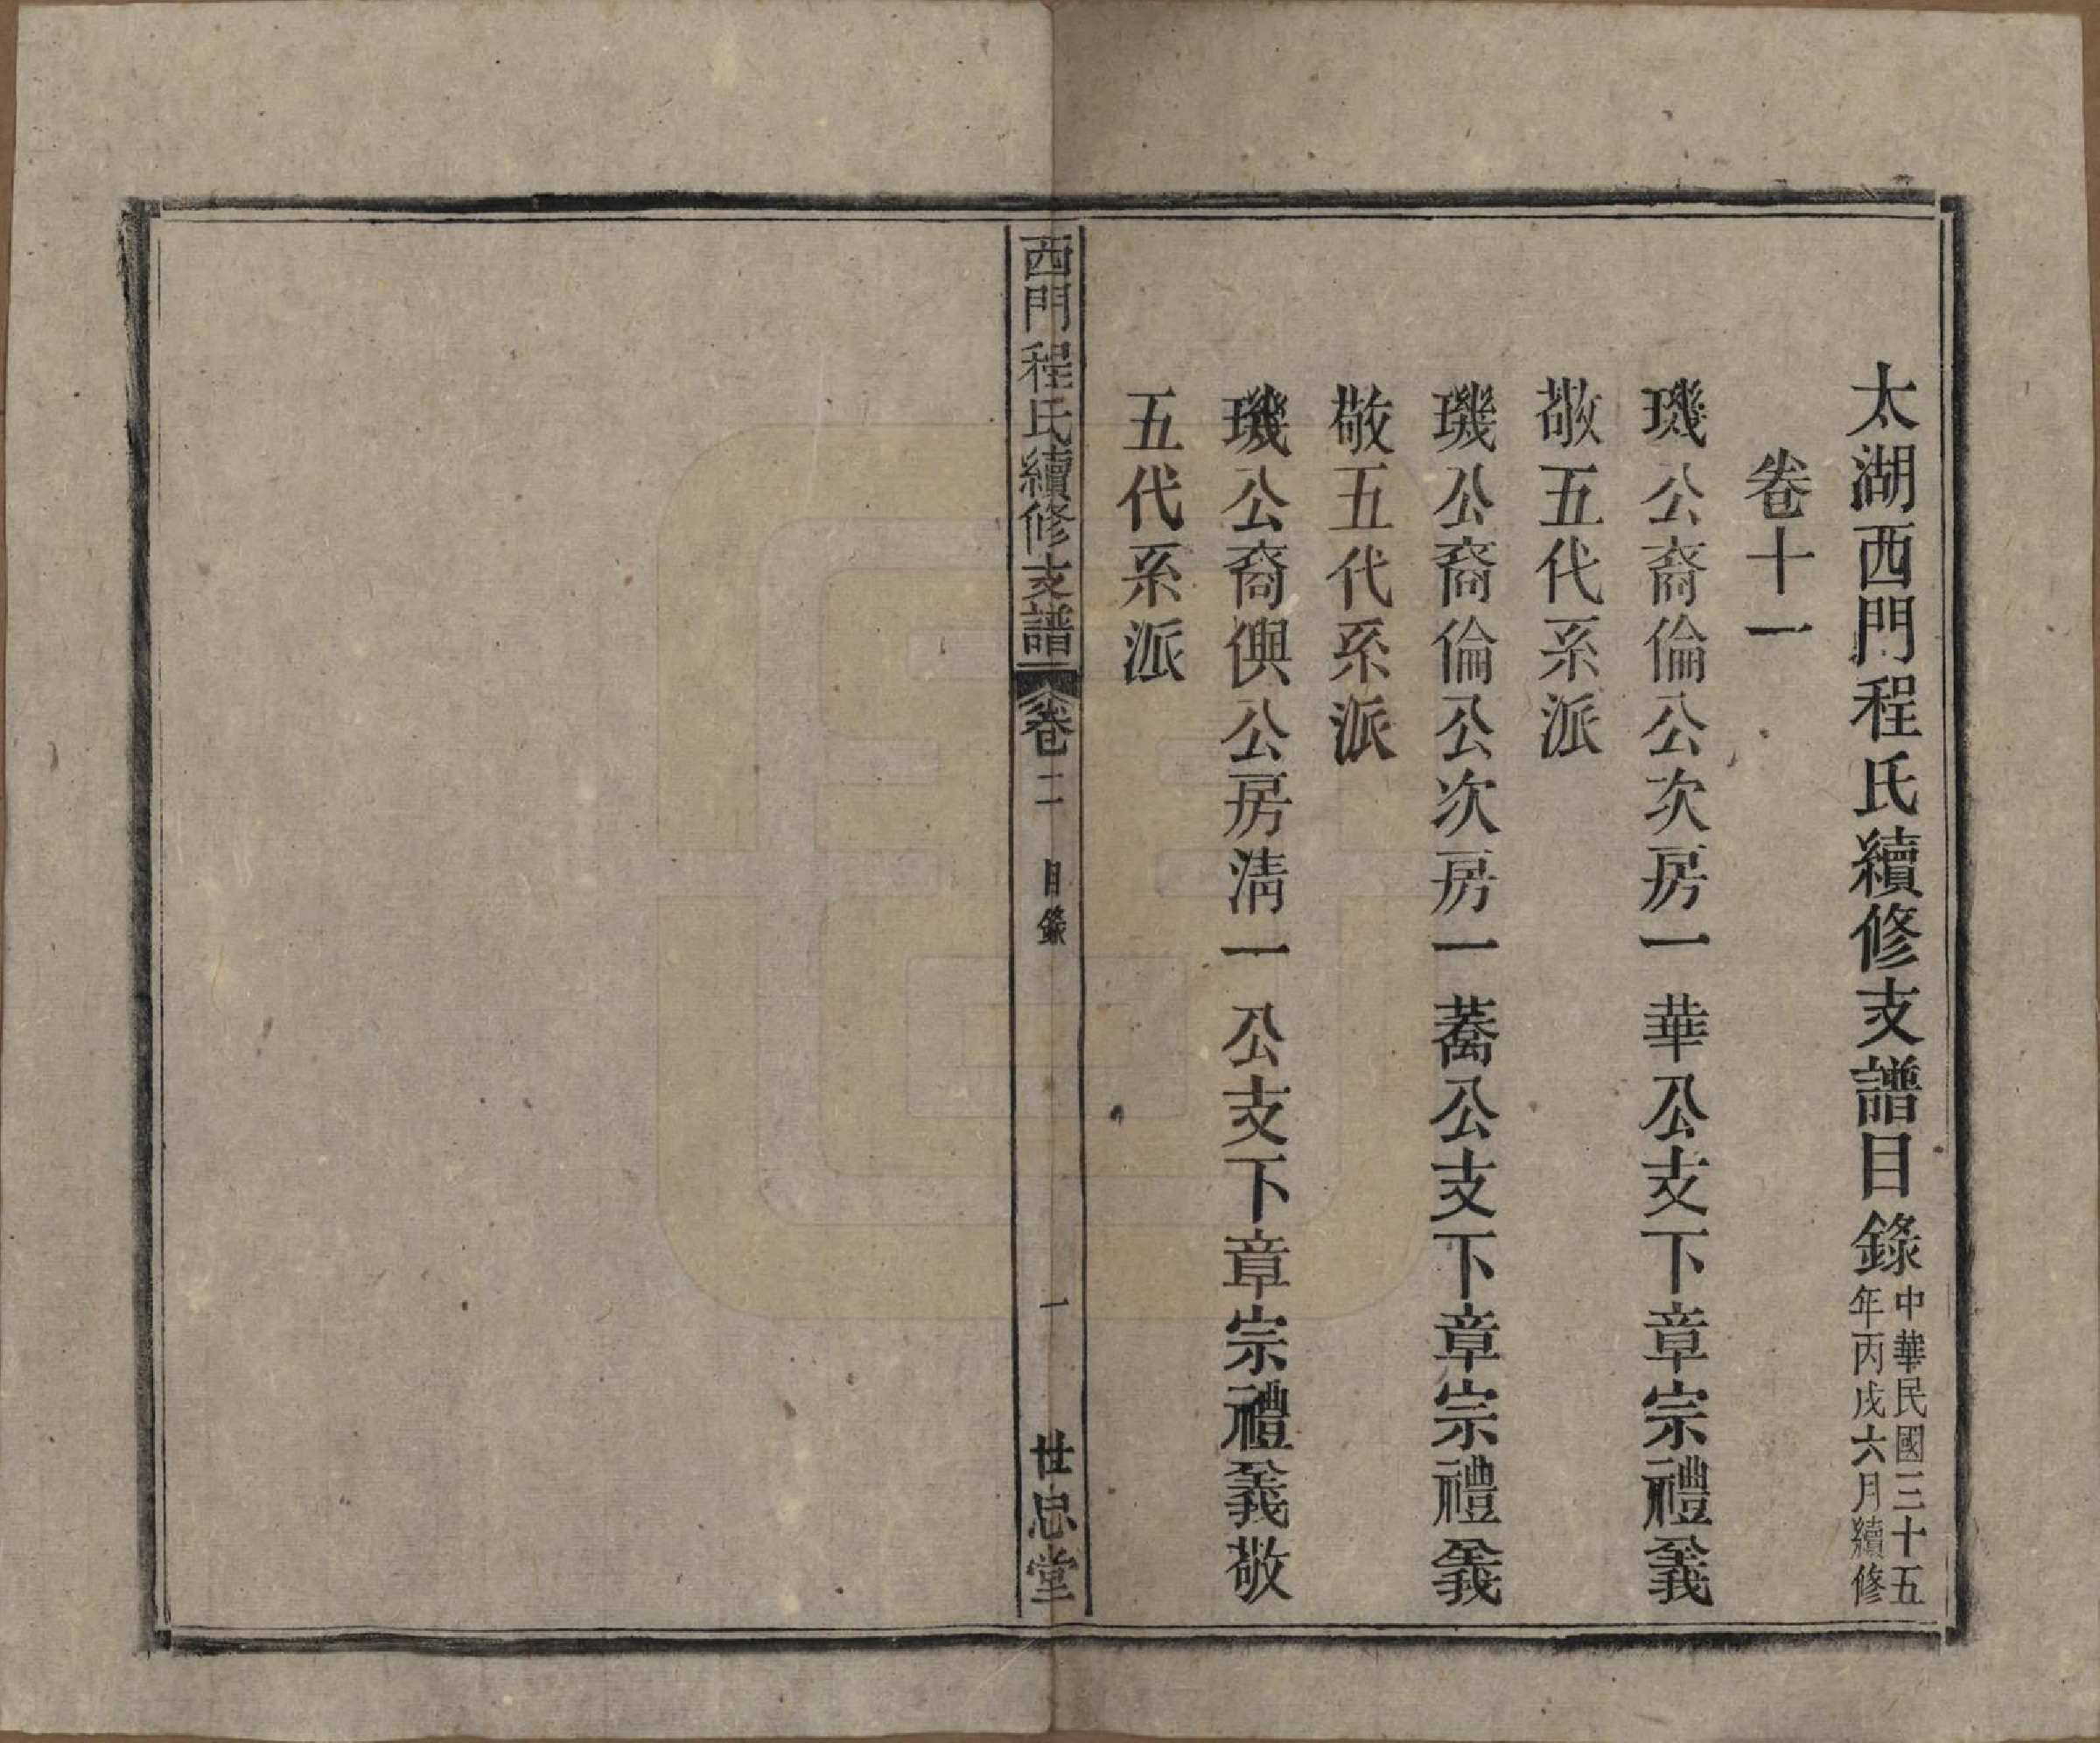 太湖西門程氏續修支譜目錄 中華民國三十五
年丙戌六月續修
卷十一
璣公裔倫公次房一華公支下章宗禮義
敬五代系派
璣公裔倫公次房一蕎公支下章宗禮義
敬五代系派
璣公裔俱公房清一公支下章宗禮義敬
五代系派
西門程氏續修支譜 卷十一 目錄 一 世忠堂